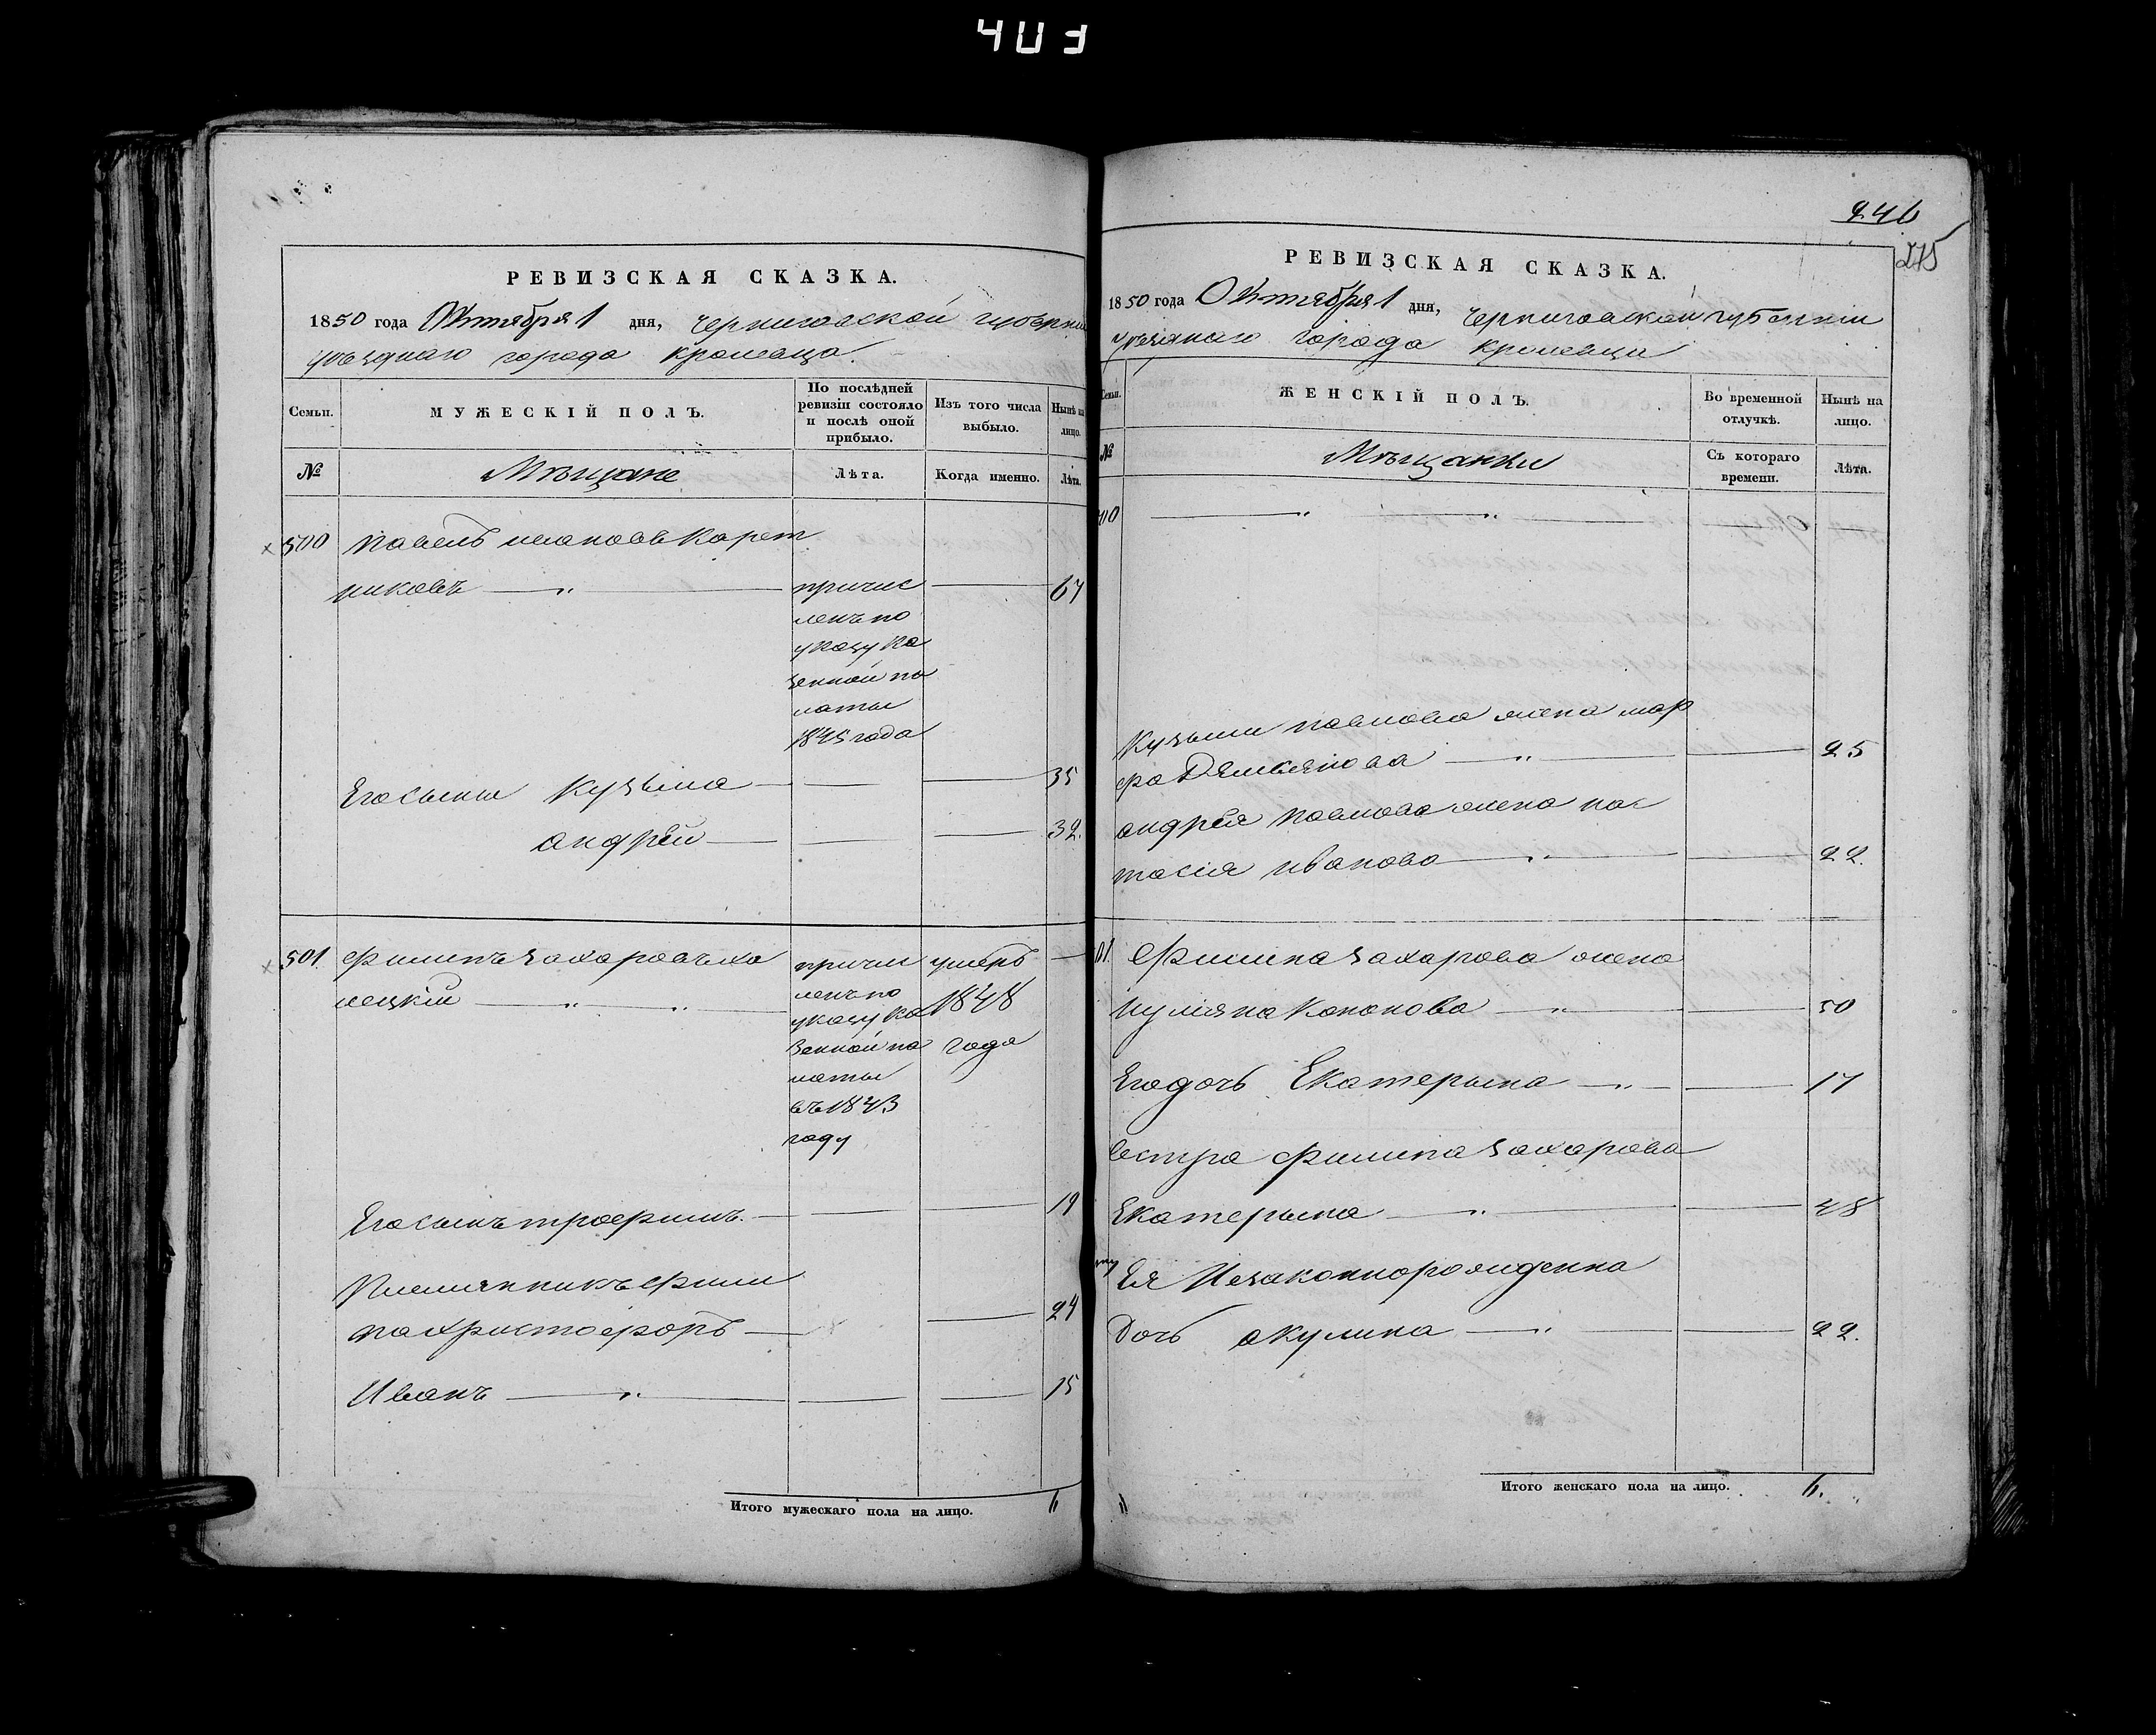 403
РЕВИЗСКАЯ СКАЗКА.
1850 года Октября 1 дня, черниговской губерніи
уѣзднаго города Кролевца
Семьи. МУЖЕСКІЙ ПОЛЪ. По послѣдней ревизіи состояло и послѣ оной прибыло. Изъ того числа выбыло. Нынѣ на лицо.
№ Мѣщане Лѣта. Когда именно. Лѣта.
500 Павелъ ивановъ Карет
никовъ — " — причис — 67
ленъ по
указу Ка
зенной па
латы
1845 года
Его сыны Кузьма — — — 35
андрѣй — — — 32.
501. Филипъ захаровъ
лецкій — " — " — причи умеръ —
ленъ по 1848
указу Ка года
зенной па
латы
въ 1843
году
Его сынъ трофимъ. — — — 19
Племянникъ фили
па христофоръ — — 24
Иванъ — " — — — 15
Итого мужескаго пола на лицо. 6
246
275
РЕВИЗСКАЯ СКАЗКА.
1850 года Октября 1 дня, Черниговской губерніи
уѣзднаго города Кролевца
Семьи. ЖЕНСКІЙ ПОЛЪ. Во временной отлучкѣ. Нынѣ на лицо.
№ Мѣщанки Съ котораго времени. Лѣта.
00 — " — " —
Кузьмы павлова жена мар
фа Демьянова — " — — 25
андрѣя павлова жена нас
тасія иванова — " — — 22.
01. Филипа захарова жена
иуліяна Кононова — " — — 50
Его дочь Екатерына — " — — 17
Сестра филипа захарова
Екатерына — " — — 48
Ея Незаконнорожденна
Дочь акулина — " — — 22.
Итого женскаго пола на лицо. 6.